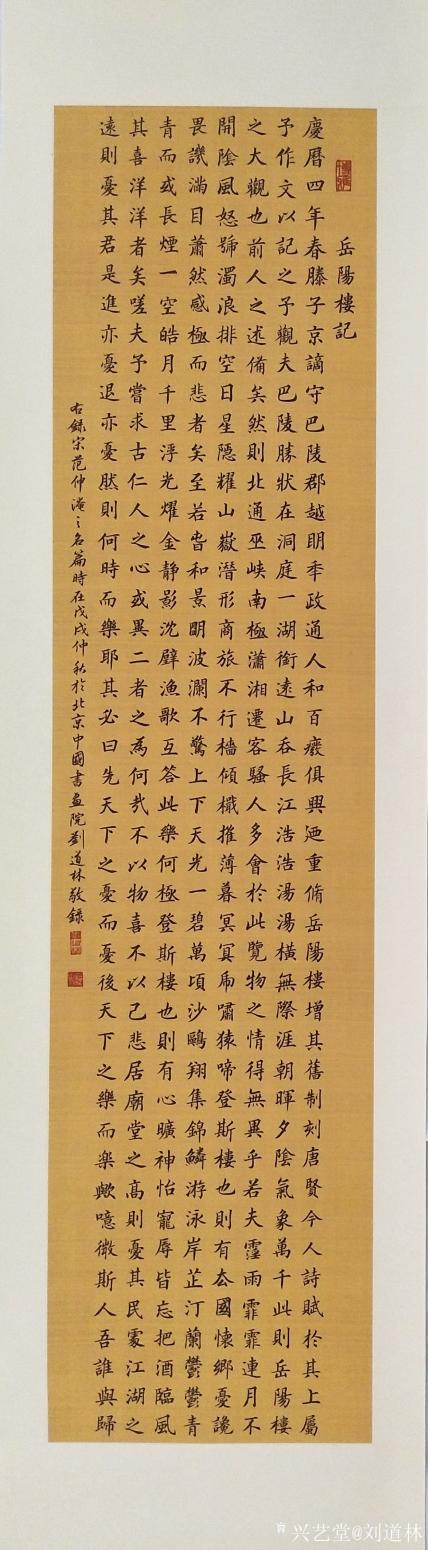 岳陽樓記
慶曆四年春滕子京謫守巴陵郡越明年政通人和百癈俱興廼重脩岳陽樓增其舊制刻唐賢今人詩賦於其上屬
予作文以記之予觀夫巴陵勝狀在洞庭一湖銜遠山吞長江浩浩湯湯橫無際涯朝暉夕陰氣象萬千此則岳陽樓
之大觀也前人之述備矣然則北通巫峽南極瀟湘遷客騷人多會於此覽物之情得無異乎若夫霪雨霏霏連月不
開陰風怒號濁浪排空日星隱耀山嶽潛形商旅不行檣傾檝摧薄暮冥冥虎嘯猿啼登斯樓也則有去國懷鄉憂讒
畏譏滿目蕭然感極而悲者矣至若春和景明波瀾不驚上下天光一碧萬頃沙鷗翔集錦鱗游泳岸芷汀蘭鬱鬱青
青而或長煙一空皓月千里浮光耀金靜影沈璧漁歌互答此樂何極登斯樓也則有心曠神怡寵辱皆忘把酒臨風
其喜洋洋者矣嗟夫予嘗求古仁人之心或異二者之為何哉不以物喜不以己悲居廟堂之高則憂其民處江湖之
遠則憂其君是進亦憂退亦憂然則何時而樂耶其必曰先天下之憂而憂後天下之樂而樂歟噫微斯人吾誰與歸
右錄宋范仲淹之名篇時在戊戌仲秋於北京中國書畫院劉道林敬錄
兴艺堂@刘道林